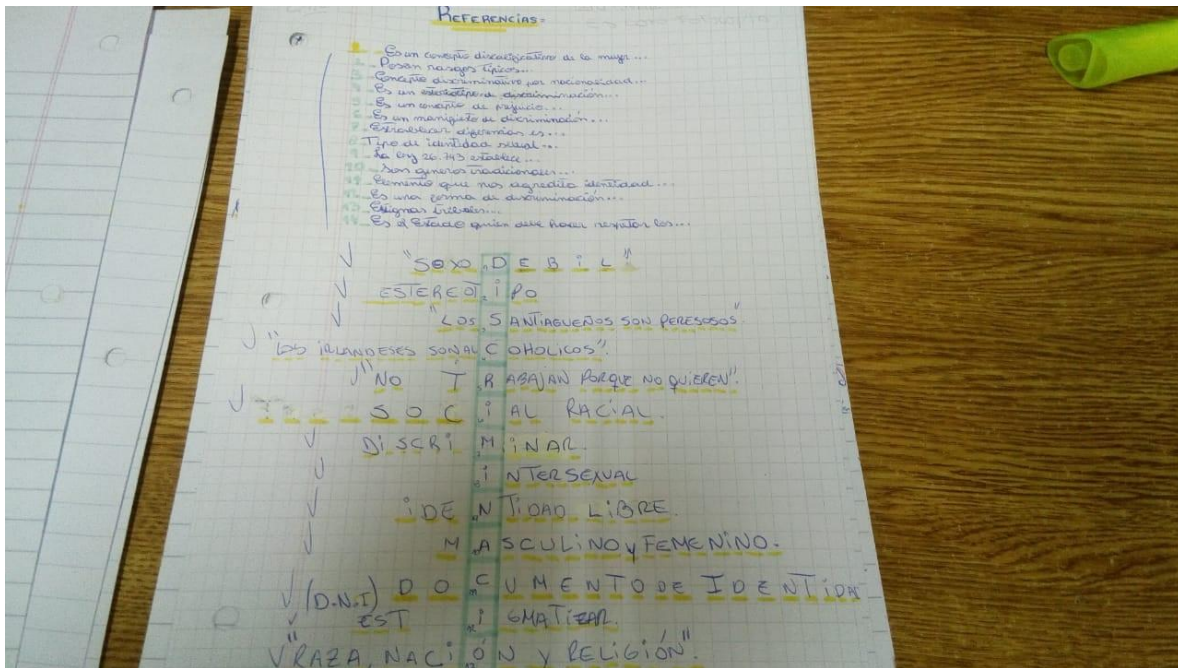 REFERENCIAS=
1_ Es un concepto discalificativo de la mujer...
2_ Posan rasgos típicos...
3_ Concepto discriminativo por nacionalidad...
4_ Es un estereotipo de discriminación...
5_ Es un concepto de prejuicio...
6_ Es un manifiesto de discriminación...
7_ Establecer diferencias es...
8_ Tipo de identidad sexual...
9_ La ley 26.743 establece...
10_ Son géneros tradicionales...
11_ que nos acredita identidad...
12_ Es una forma de discriminación...
13_
14_ Es el Estado quien debe hacer respetar los...
"SEXO DEBIL"
ESTEREOTIPO
"LOS SANTIAGUEÑOS SON PERESOSOS"
"LOS IRLANDESES SON ALCOHOLICOS".
"NO TRABAJAN PORQUE NO QUIEREN".
SOCIAL RACIAL.
DISCRIMINAR.
INTERSEXUAL
IDENTIDAD LIBRE.
MASCULINO y FEMENINO.
(D.N.I) DOCUMENTO DE IDENTIDA
ESTIGMATIZAR.
"RAZA, NACIÓN Y RELIGIÓN".